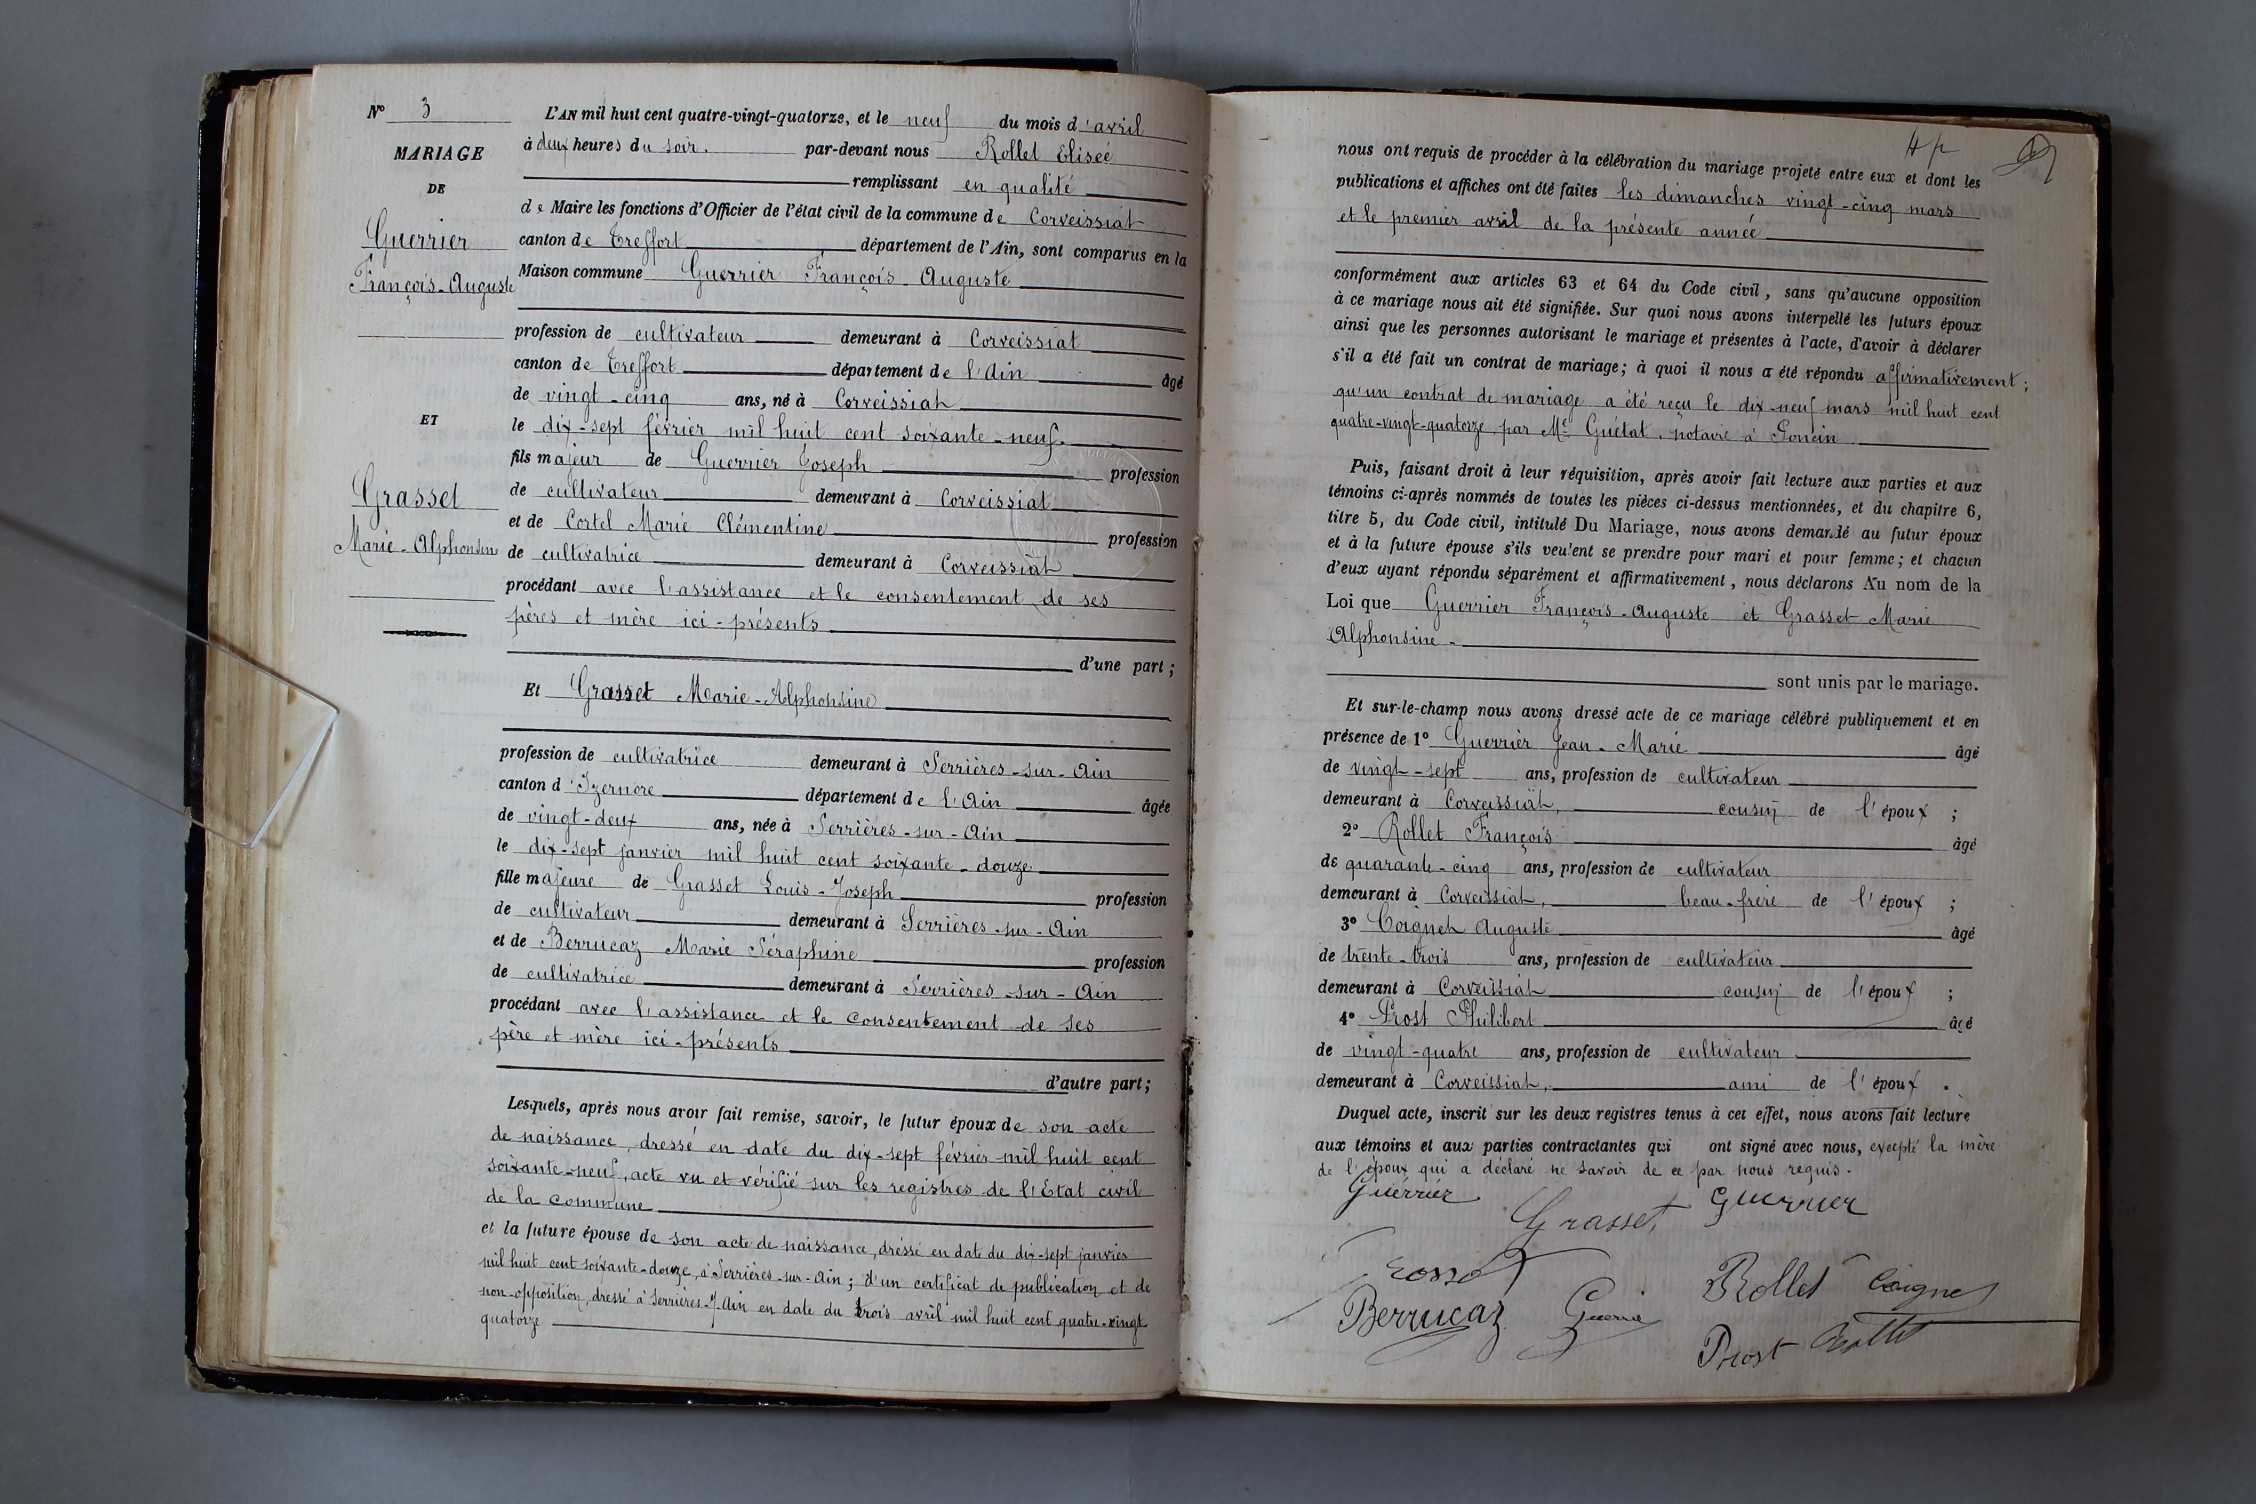 N° 3
MARIAGE
DE
Guerrier
François-Auguste
ET
Grasset
Marie-Alphonsine
L'AN mil huit cent quatre-vingt-quatorze, et le neuf du mois d'avril
à deux heures du soir. par-devant nous Rollet Eliseé
remplissant en qualité
de Maire les fonctions d'Officier de l'état civil de la commune de Corveissiat
canton de Treffort département de l'Ain, sont comparus en la
Maison commune Guerrier François Auguste
profession de cultivateur demeurant à Corveissiat
canton de Treffort département de l'Ain âgé
de vingt-cinq ans, né à Corveissiat
le dix-sept février mil huit cent soixante-neuf.
fils majeur de Guerrier Joseph profession
de cultivateur demeurant à Corveissiat
et de Cortel Marie Clémentine profession
de cultivatrice demeurant à Corveissiat
procédant avec l'assistance et le consentement de ses
pères et mère ici-présents
d'une part ;
Et Grasset Marie-Alphonsine
profession de cultivatrice demeurant à Serrières-sur-Ain
canton d'Izernore département de l'Ain âgée
de vingt-deux ans, née à Serrières-sur-Ain
le dix-sept janvier mil huit cent soixante-douze
fille majeure de Grasset Louis-Joseph profession
de cultivateur demeurant à Serrières-sur-Ain
et de Berrucaz Marie Séraphine profession
de cultivatrice demeurant à Serrières-sur-Ain
procédant avec l'assistance et le consentement de ses
père et mère ici-présents
d'autre part ;
Lesquels, après nous avoir fait remise, savoir, le futur époux de son acte
de naissance, dressé en date du dix-sept février mil huit cent
soixante-neuf, acte vu et vérifié sur les registres de l'Etat civil
de la commune
et la future épouse de son acte de naissance, dréssé en date du dix-sept janvier
mil huit cent soixante-douze, à Serrières-sur-Ain ; d'un certificat de publication et de
non-opposition, dressé à Serrières-s/-Ain en date du trois avril mil huit cent quatre-vingt
quatorze
nous ont requis de procéder à la célébration du mariage projeté entre eux et dont les
publications et affiches ont été faites les dimanches vingt-cinq mars
et le premier avril de la présente année
conformément aux articles 63 et 64 du Code civil, sans qu'aucune opposition
à ce mariage nous ait été signifiée. Sur quoi nous avons interpellé les futurs époux
ainsi que les personnes autorisant le mariage et présentes à l'acte, d'avoir à déclarer
s'il a été fait un contrat de mariage ; à quoi il nous a été répondu affirmativement ;
qu'un contrat de mariage a été reçu le dix-neuf mars mil huit cent
quatre-vingt-quatorze par Me Guétat, notaire à
Puis, faisant droit à leur réquisition, après avoir fait lecture aux parties et aux
témoins ci-après nommés de toutes les pièces ci-dessus mentionnées, et du chapitre 6,
titre 5, du Code civil, intitulé Du Mariage, nous avons demandé au futur époux
et à la future épouse s'ils veulent se prendre pour mari et pour femme ; et chacun
d'eux ayant répondu séparément et affirmativement, nous déclarons Au nom de la
Loi que Guerrier François-Auguste et Grasset Marie
Alphonsine-
sont unis par le mariage.
Et sur-le-champ nous avons dressé acte de ce mariage célébré publiquement et en
présence de 1° Guerrier Jean-Marie âgé
de vingt-sept ans, profession de cultivateur
demeurant à Corveissiat, cousin de l'époux ;
2° Rollet François âgé
de quarante-cinq ans, profession de cultivateur
demeurant à Corveissiat, beau-frère de l'époux ;
3° Coignet Auguste âgé
de trente-trois ans, profession de cultivateur
demeurant à Corveissiat cousin de l'époux ;
4° Prost Philibert âgé
de vingt-quatre ans, profession de cultivateur
demeurant à Corveissiat, ami de l'époux.
Duquel acte, inscrit sur les deux registres tenus à cet effet, nous avons fait lecture
aux témoins et aux parties contractantes qui ont signé avec nous, excepté la mère
de l'époux qui a déclaré ne savoir de ce par nous requis.
Guérrier Grasset Guerrier
Berrucaz Guerrie Rollet Coignet
Prost